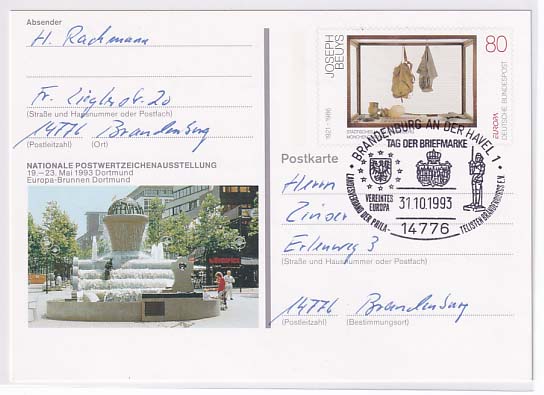 Absender
H. Rachmann
Fr. Zieglerstr. 20
(Straße und Hausnummer oder Postfach)
14776 Brandenburg
(Postleitzahl) (Ort)
NATIONALE POSTWERTZEICHENAUSSTELLUNG
19.–23. Mai 1993 Dortmund
Europa-Brunnen Dortmund
JOSEPH
BEUYS
1921–1986
80
EUROPA
DEUTSCHE BUNDESPOST
BRANDENBURG AN DER HAVEL 1
TAG DER BRIEFMARKE
VEREINTES
EUROPA
31.10.1993
LANDESVERBAND DER PHILA-
TELISTEN BRANDENBURGS E.V.
14776
Postkarte
Herrn
Erlenweg 3
(Straße und Hausnummer oder Postfach)
14776 Brandenburg
(Postleitzahl) (Bestimmungsort)